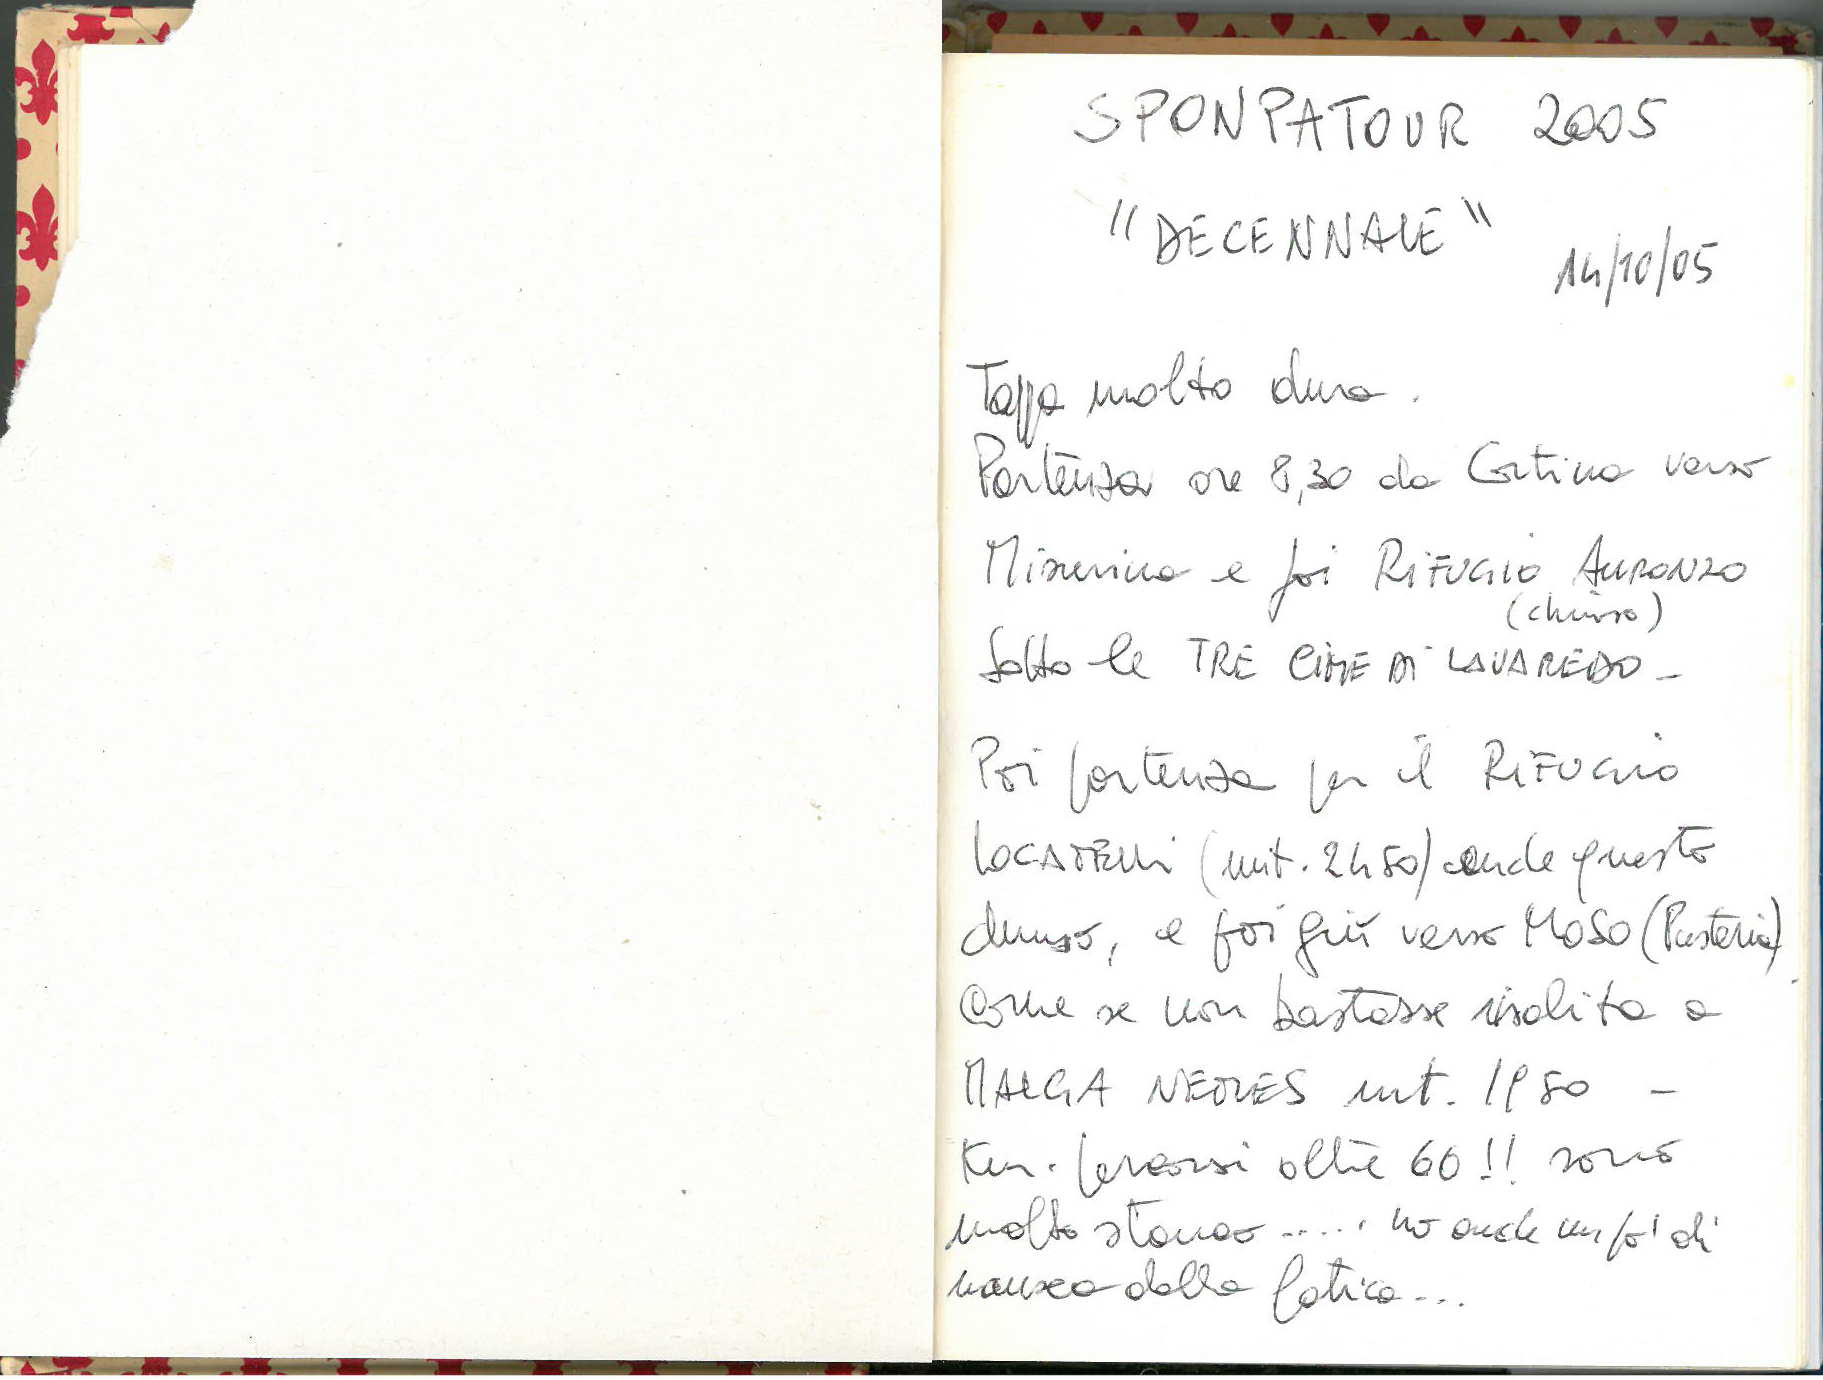 SPONPATOUR 2005
"DECENNALE"
14/10/05
Tappa molto dura.
Partenza ore 8,30 da Cortina verso
Misurina e poi RIFUGIO AURONZO
(chiuso)
Sotto le TRE CIME DI LAVAREDO -
Poi partenza per il RIFUGIO
LOCATELLI (mt. 2450) anche questo
chiuso, e poi giù verso MOSO (Pusteria)
Come se non bastasse risalita a
MALGA NEMES mt. 1950 -
Km. percorsi oltre 60!! sono
molto stanco ..... ho anche un po' di
nausea dalla fatica...